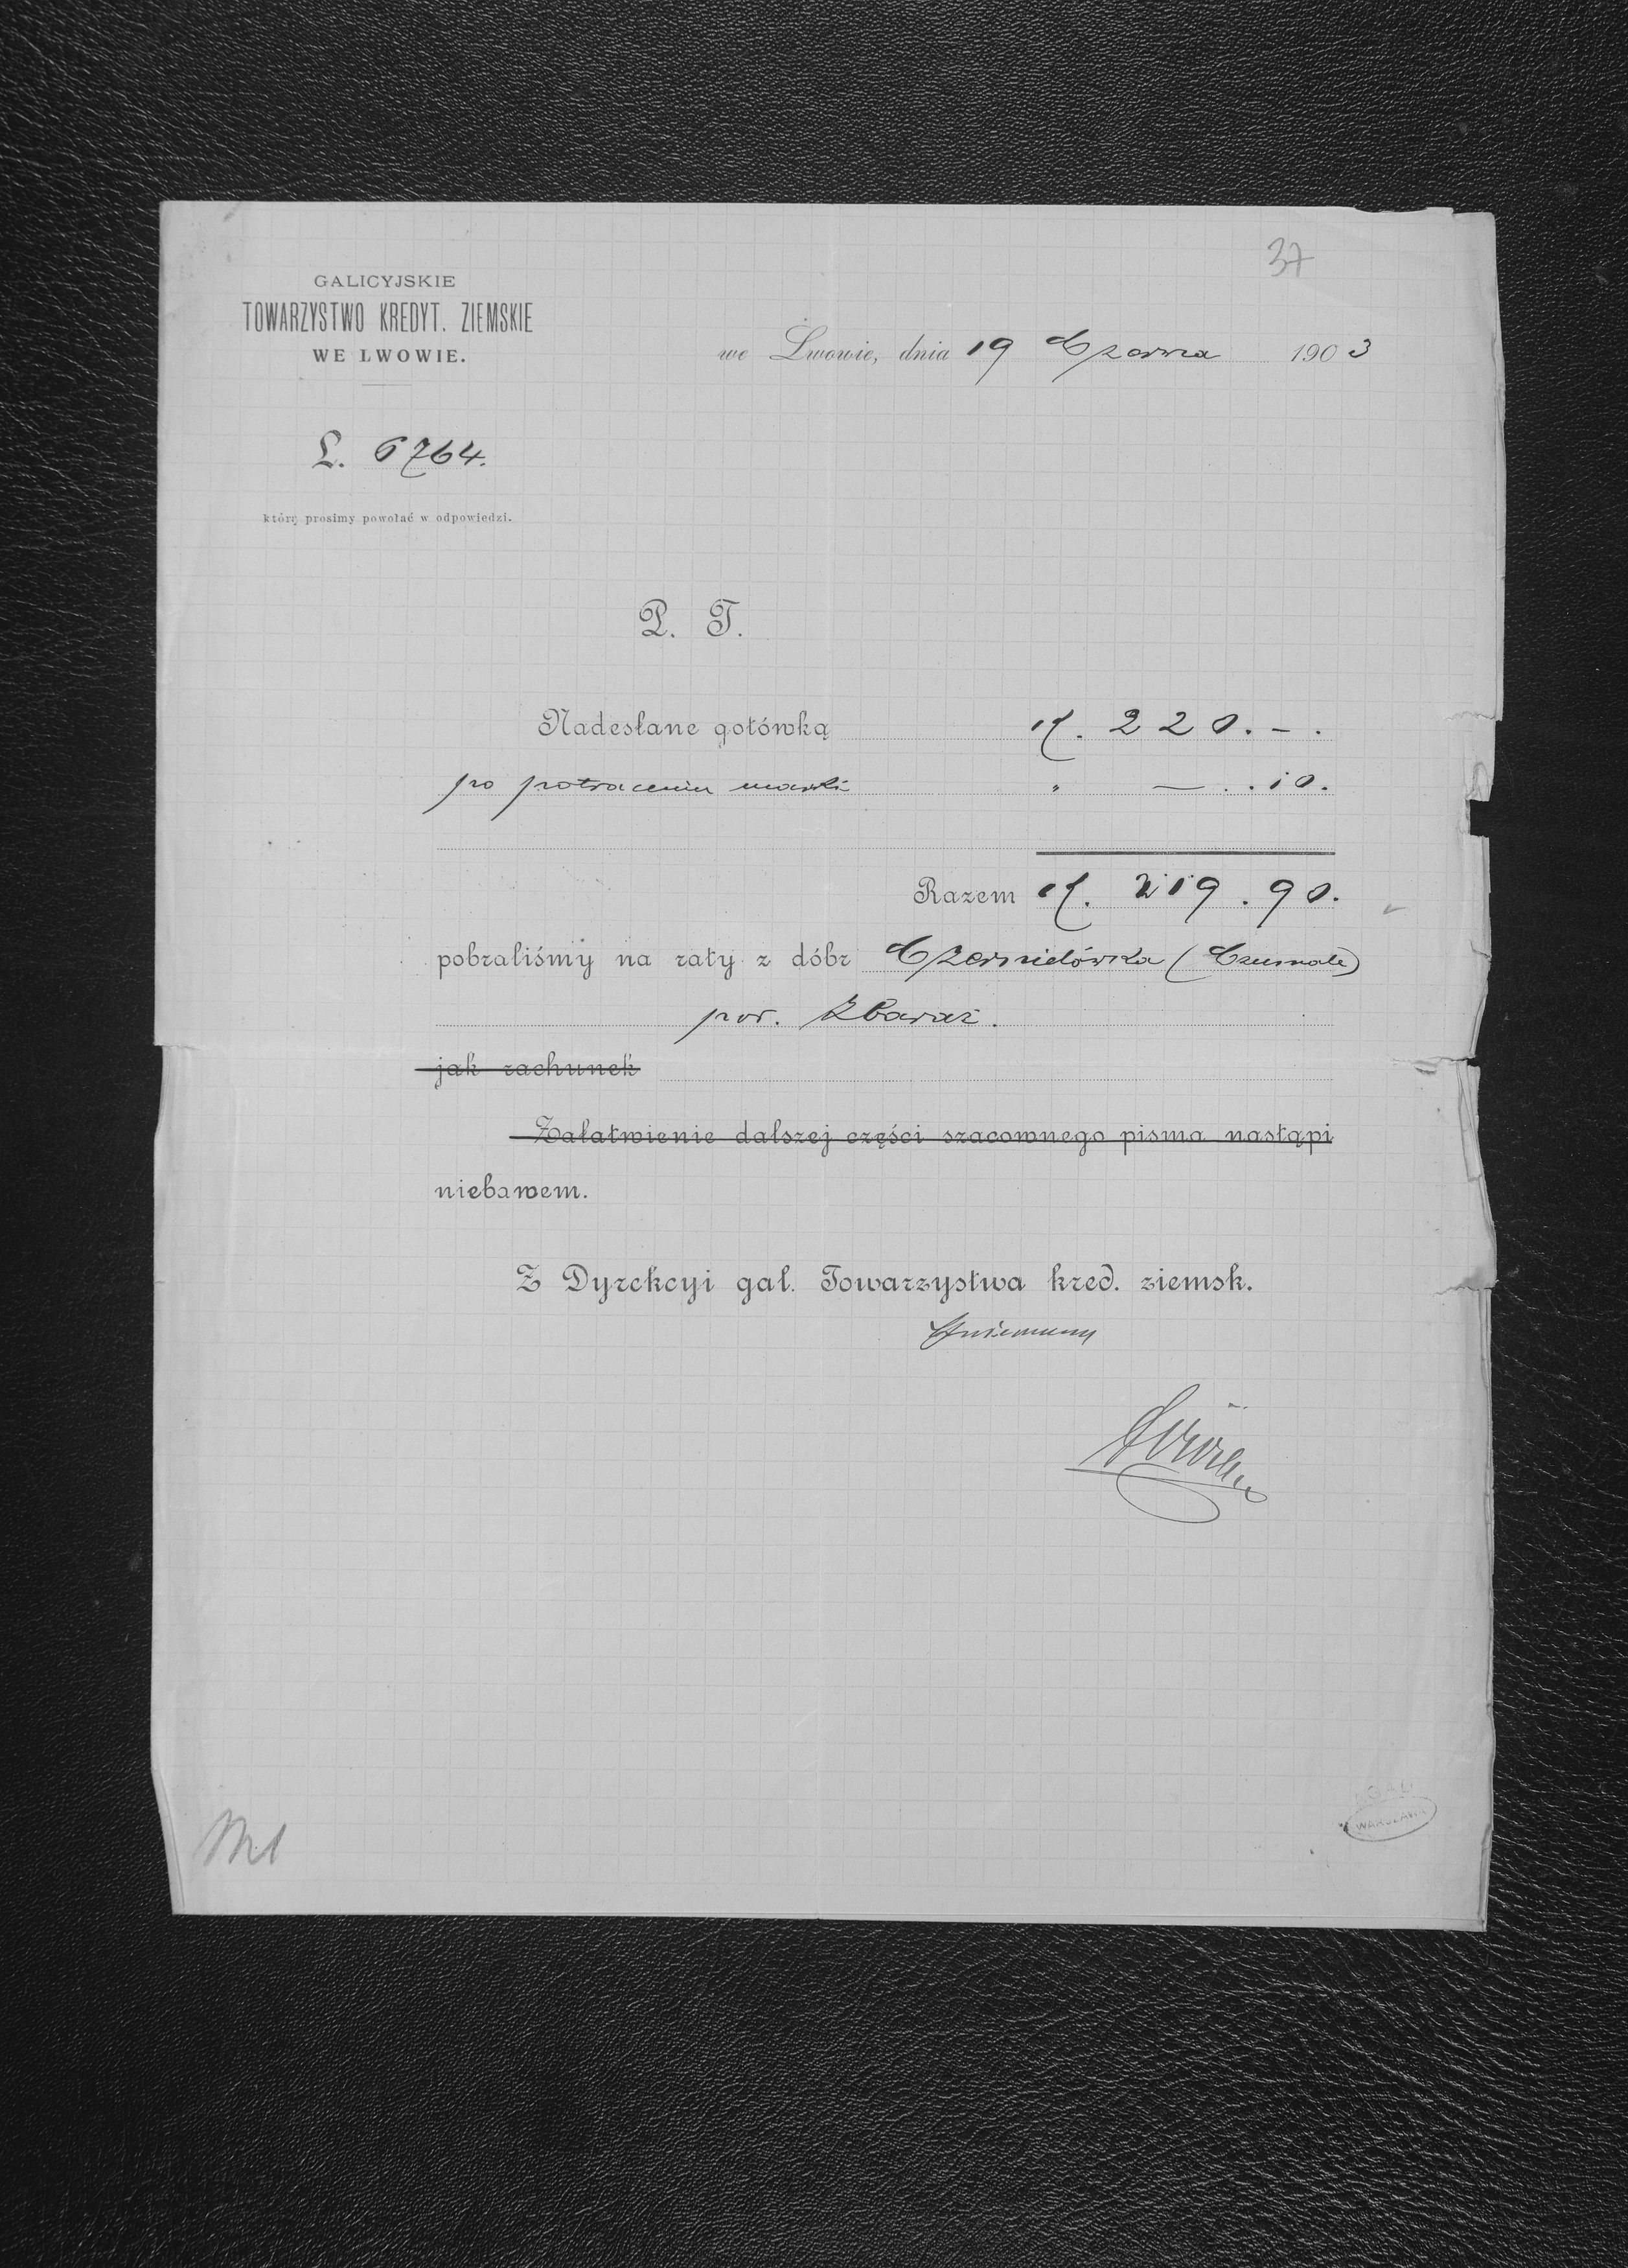 37
GALICYJSKIE
TOWARZYSTWO KREDYT. ZIEMSKIE
WE LWOWIE.
we Lwowie, dnia 19 Czerwca 1903
L. 6764.
który prosimy powołać w odpowiedzi.
P. T.
Nadesłane gotówką K. 220.-.
po potraceniu marki " — . 10.
Razem K. 219.90.
pobraliśmy na raty z dóbr (Czumale)
pow. Zbaraż.
jak rachunek
Załatwienie dalszej części szacownego pisma nastąpi
niebawem.
Z Dyrekcyi gal. Towarzystwa kred. ziemsk.
AGAD
WARSZAWA